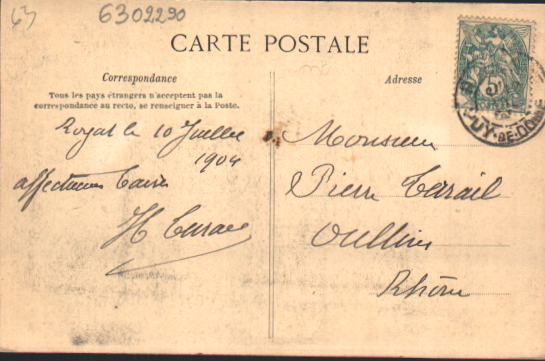 63
6302290
CARTE POSTALE
Correspondance
Tous les pays étrangers n'acceptent pas la
correspondance au recto, se renseigner à la Poste.
Royat le 10 Juillet
1904
H
Adresse
Monsieur
Pierre
Oullins
Rhône
5
PUY-DE-DOME